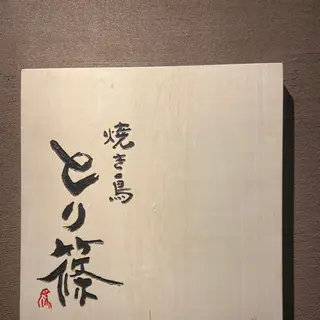 焼き鳥
とり篠